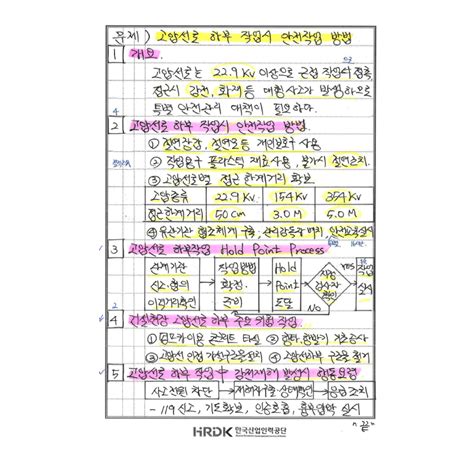 문제) 고압선로 하부 작업시 안전작업 방법
1 개요
고압선로는 22.9 KV 이상으로 근접 작업시 접촉,
접근시 감전, 화재 등 대형사고가 발생하므로
특별 안전관리 대책이 필요하다.
2 고압선로 하부 작업시 안전작업 방법
① 절연장갑, 절연모 등 개인보호구 사용
② 작업용구 플라스틱 재료사용, 불가시 절연조치
③ 고압선로별 접근 한계거리 확보
고압종류 22.9KV 154KV 354KV
접근한계거리 50cm 3.0M 5.0M
④ 유관기관 협조체계 구축
3 고압선로 하부작업 Hold Point Process
관계기관 작업방법 Hold YES 작업
신고, 협의 확정 Point 실시
이격거리확인 준비 도달 No
4 건설현장 고압선로 하부 주요 위험 작업
① 펌프카 이용 콘크리트 타설 ② 항타, 항발기 기초공사
③ 고압선 인접 가설구조물 설치
5 고압선로 하부 작업 中 감전재해 발생시 행동요령
사고전원 차단 재해자구출 상태확인 응급조치
- 119 신고, 기도확보, 인공호흡, 흉부압박 실시
"끝"
HRDK 한국산업인력공단